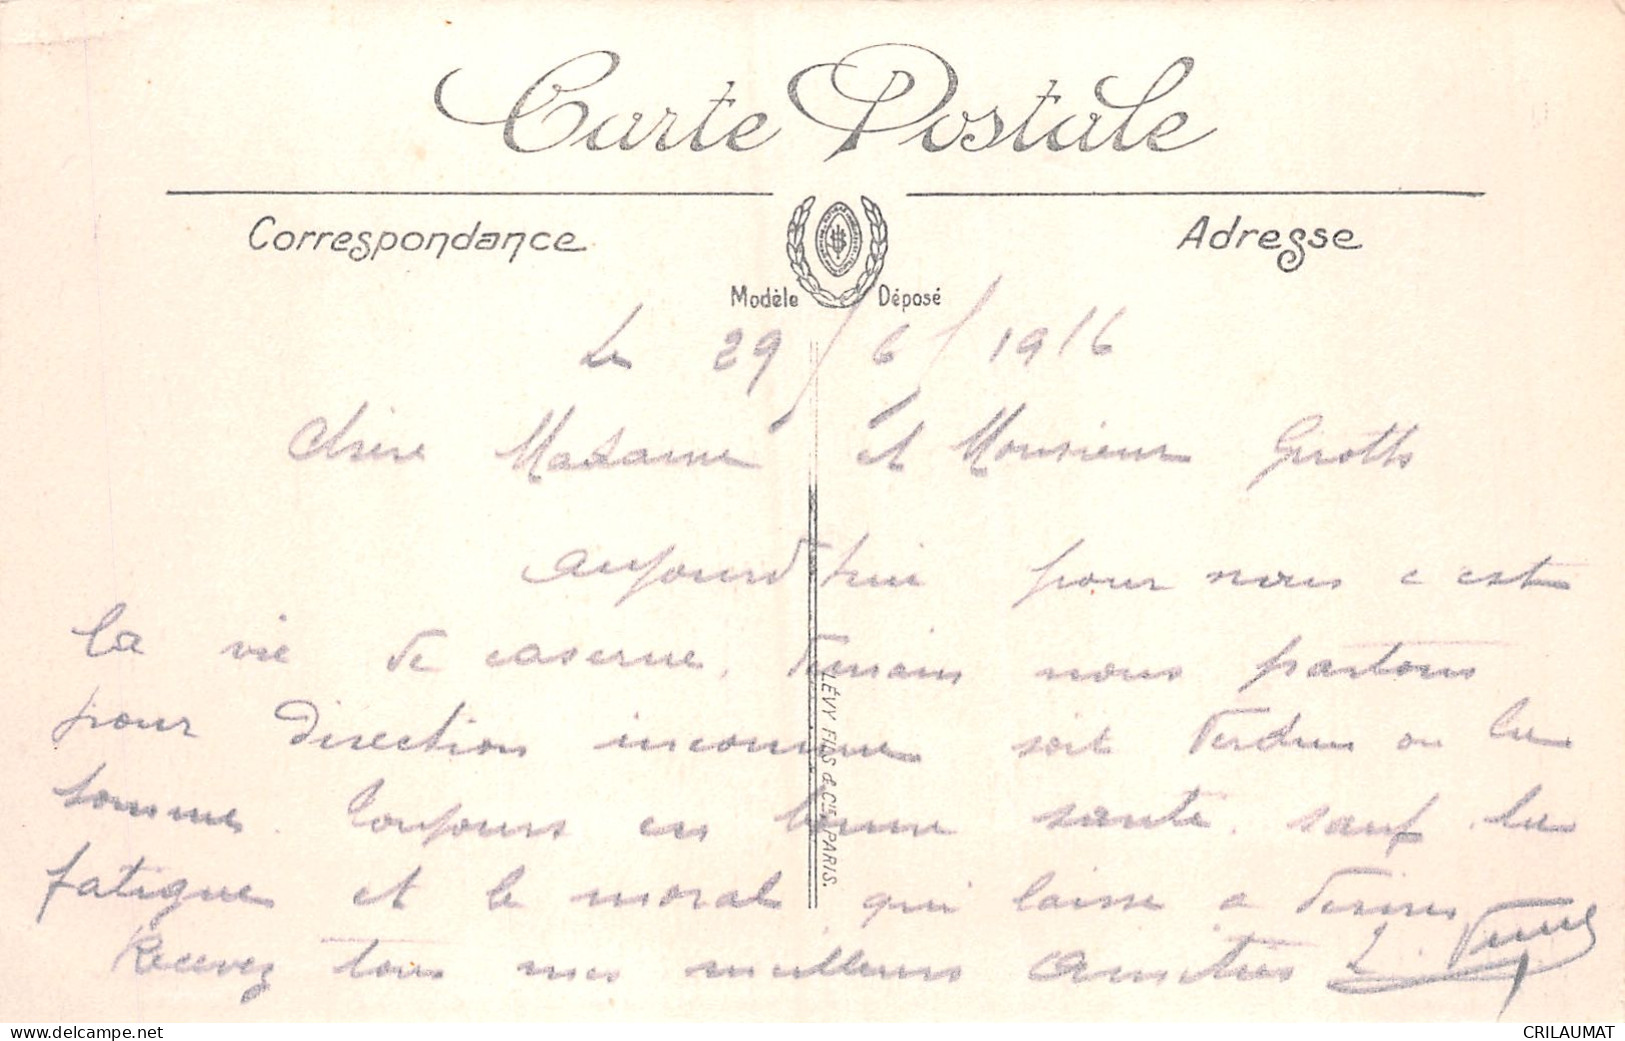 Carte Postale
Correspondance
Adresse
Modèle Déposé
Le 29/6/1916
Chère Madame et Monsieur
aujourd hui pour nous c est
la vie de caserne. demain nous partons
pour direction inconnue soit Verdun ou la
Somme. Toujours en bonne santé. sauf la
fatigue et le moral qui laisse a désirer
Recevez tous mes meilleurs amitiés
LÉVY FILS & Cie, PARIS.
www.delcampe.net
CRILAUMAT